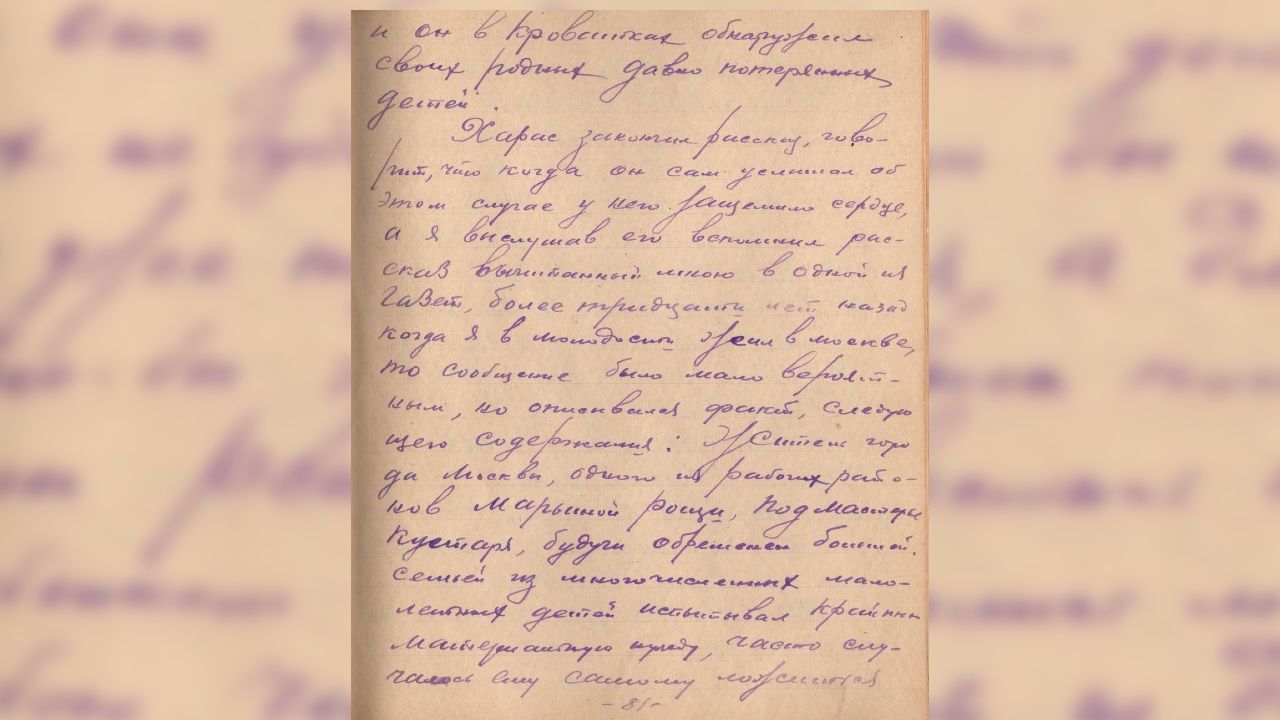 и он в Кроватках обнаружил
своих родных давно потерянных
детей.
Харас закончил рассказ, гово-
рит, что когда он сам услышал об
этом случае у него защемило сердце,
а я выслушав его вспомнил рас-
сказ вычитанный мною в одной из
Газет, более тридцати лет назад
когда я в молодости жил в москве,
то сообщение было мало вероят-
ным, но описывался факт, следую
щего содержания: Житель горо
да Москвы, одного из рабочих райо-
нов Марьиной рощи, подмастерье
Кустаря, будучи обременен большой
семьей из многочисленных мало-
летних детей испытывал крайнюю
материальную нужду, часто слу-
чалось ему самому ложиться
- 81 -